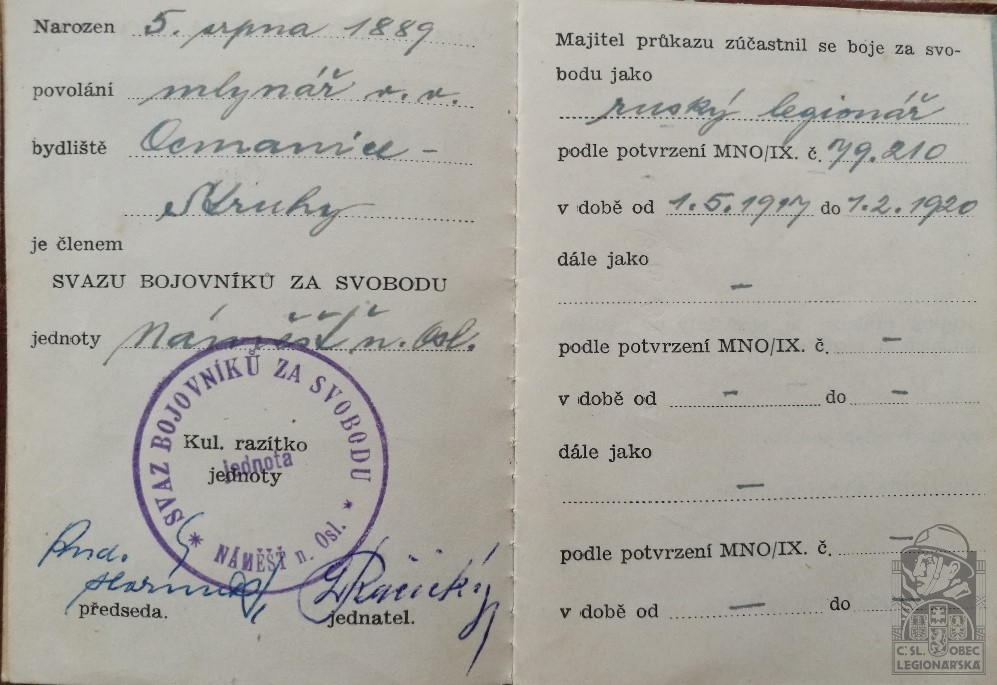 Narozen 5. srpna 1889
povolání mlynář v. v.
bydliště Ocmanice -
je členem
SVAZU BOJOVNÍKŮ ZA SVOBODU
jednoty Náměšť n. Osl.
SVAZ BOJOVNÍKŮ ZA SVOBODU
Kul. razítko
jednota
jednoty
* NÁMĚŠŤ n. Osl. *
předseda.
jednatel.
Majitel průkazu zúčastnil se boje za svo-
bodu jako
ruský legionář
podle potvrzení MNO/IX. č. 79.210
v době od 1.5.1917 do 1.2.1920
dále jako
—
podle potvrzení MNO/IX. č. —
v době od — do —
dále jako
—
podle potvrzení MNO/IX. č. —
v době od — do —
Č.SL. OBEC
LEGIONÁŘSKÁ